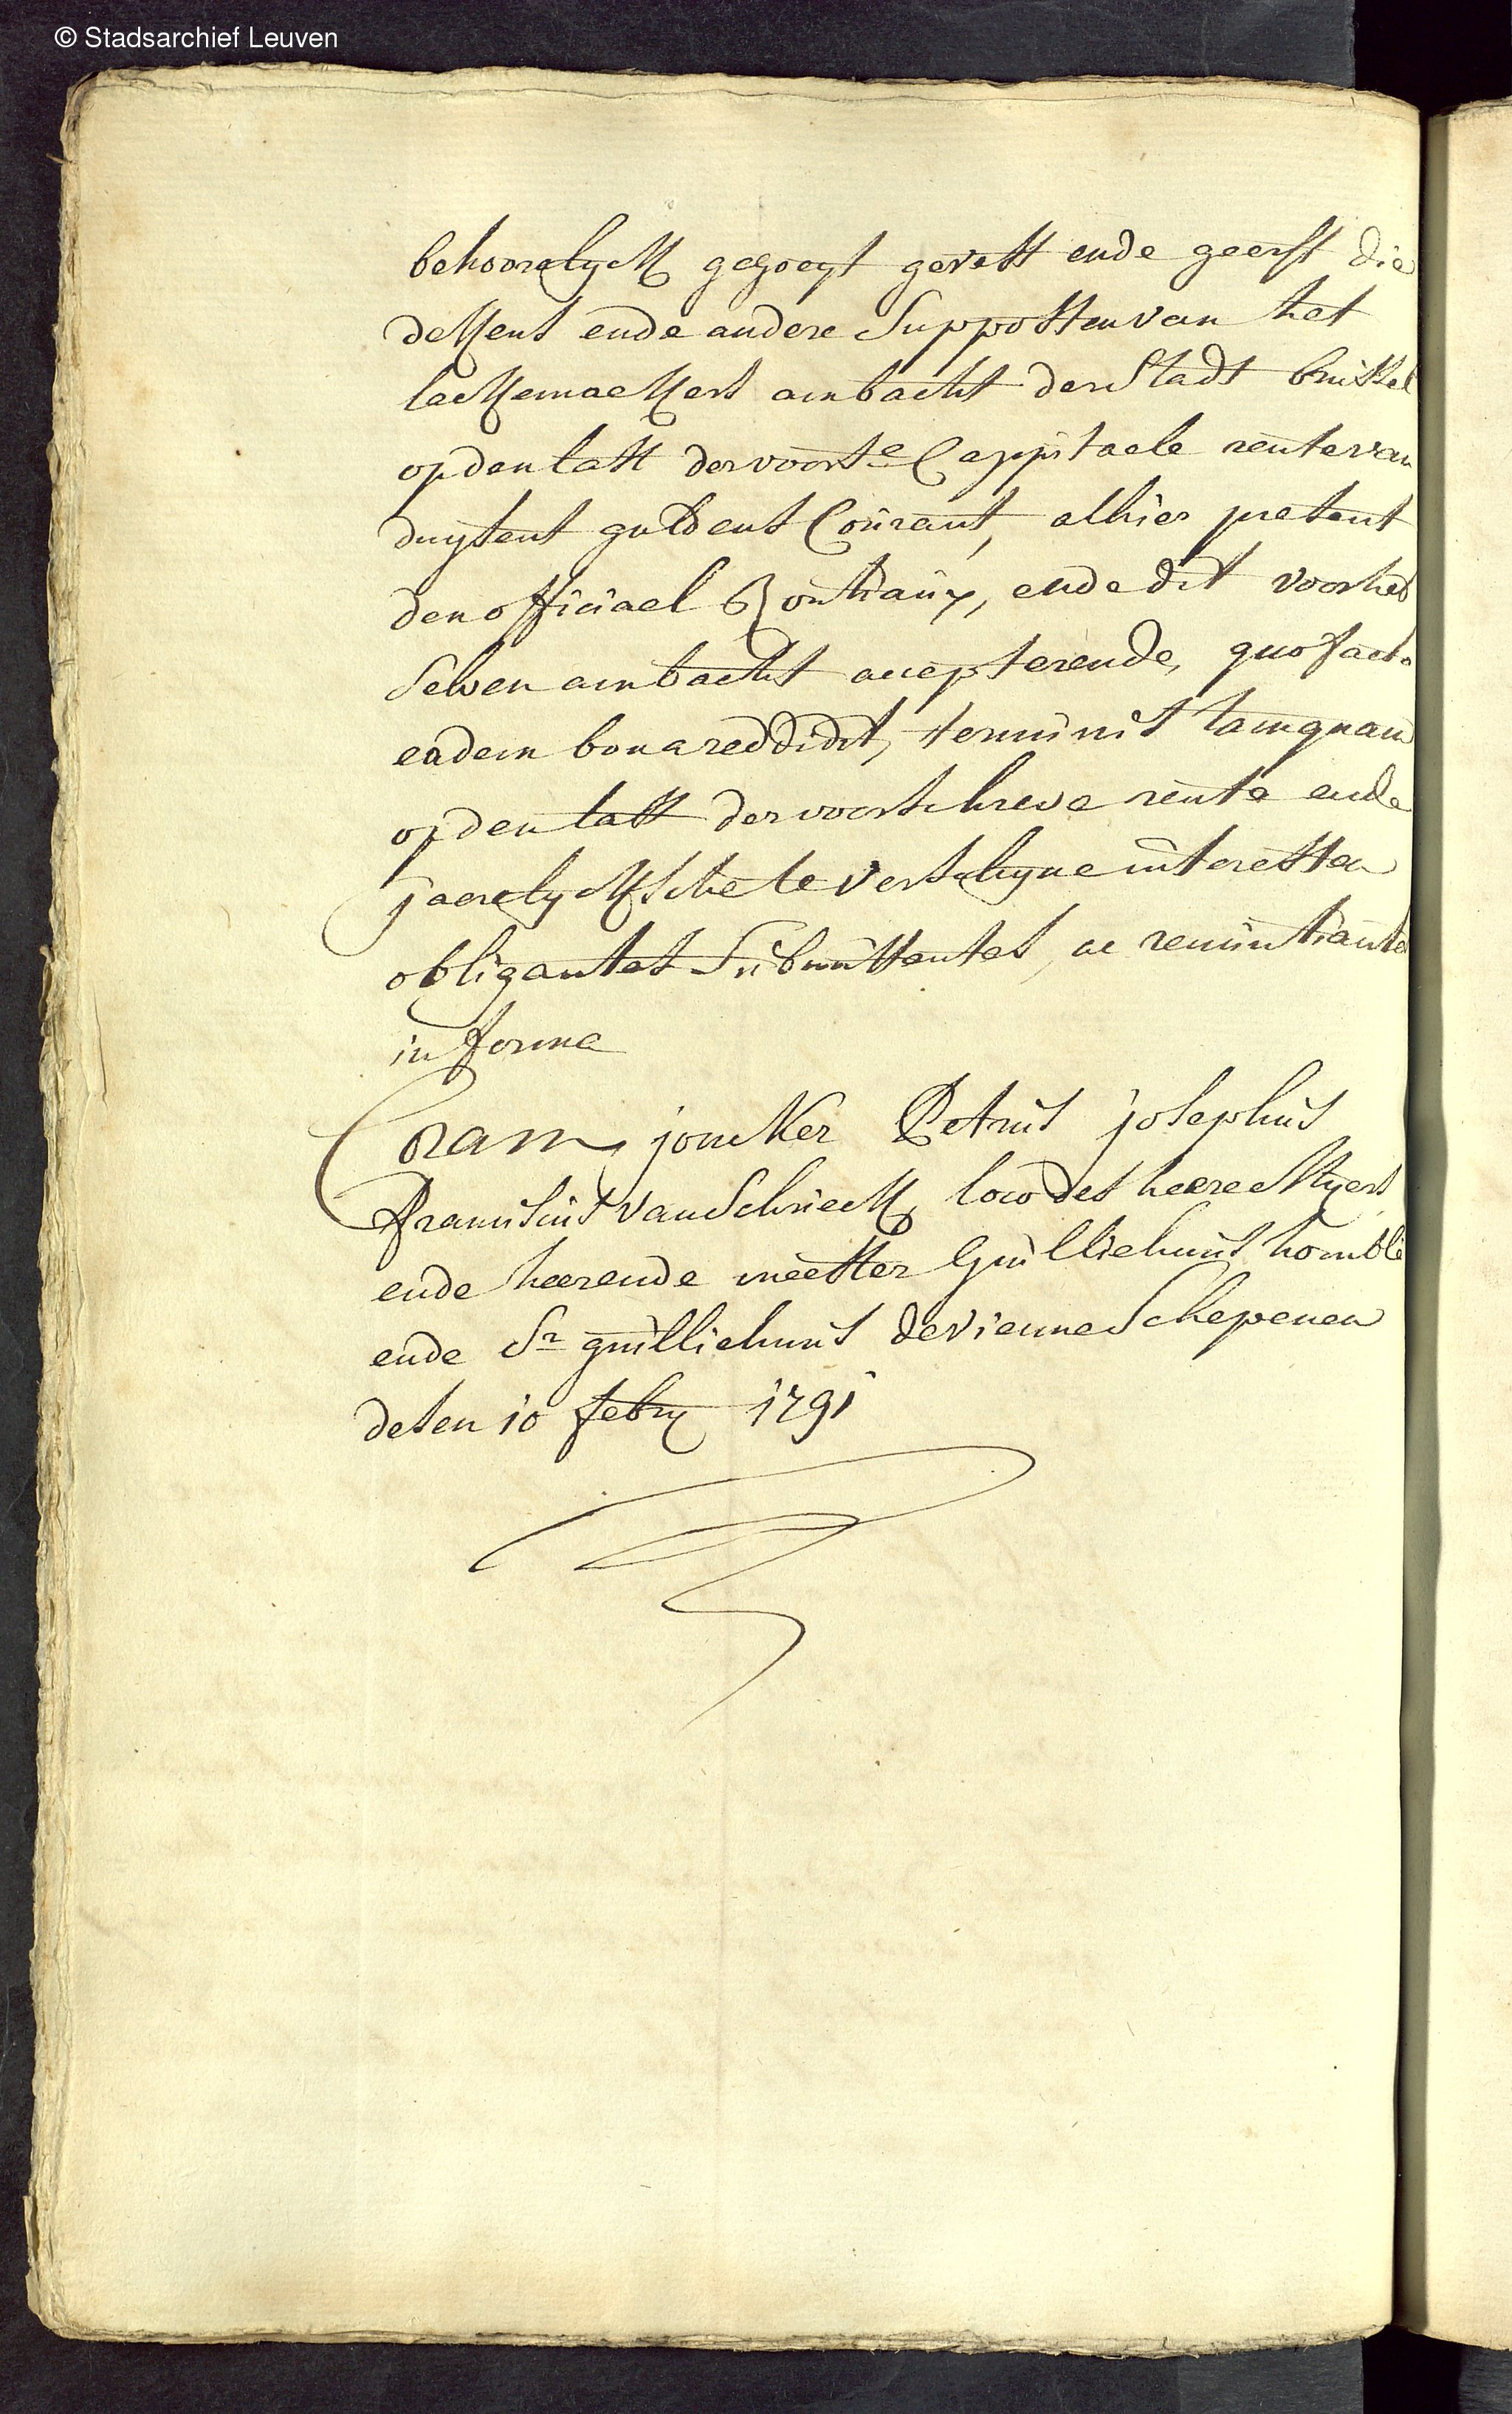 © Stadsarchief Leuven
behoorelyck gegoeyt gevest ende geerft die
dekens ende andere Supposten van het
lackemaeckers ambacht der Stadt brussel
op den last der voors.e Cappitaele rente van
duysent guldens Courant, alhier present
den officiael Rontiaux, ende dit voor het
selven ambacht accepterende, quo facto
eadem bona reddidit, terminis tamquam
op den last der voorschreve rente ende
jaerelycksche te verschyne interesten
obligantes Submittentes, ac renuntiantes
in forma
Coram joncker Petrus josephus
franciscus van Schrieck loco des heere Meyers
ende heer ende meester Guillielmus
ende Sr guillielmus de vienne Schepenen
desen 10 febry 1791